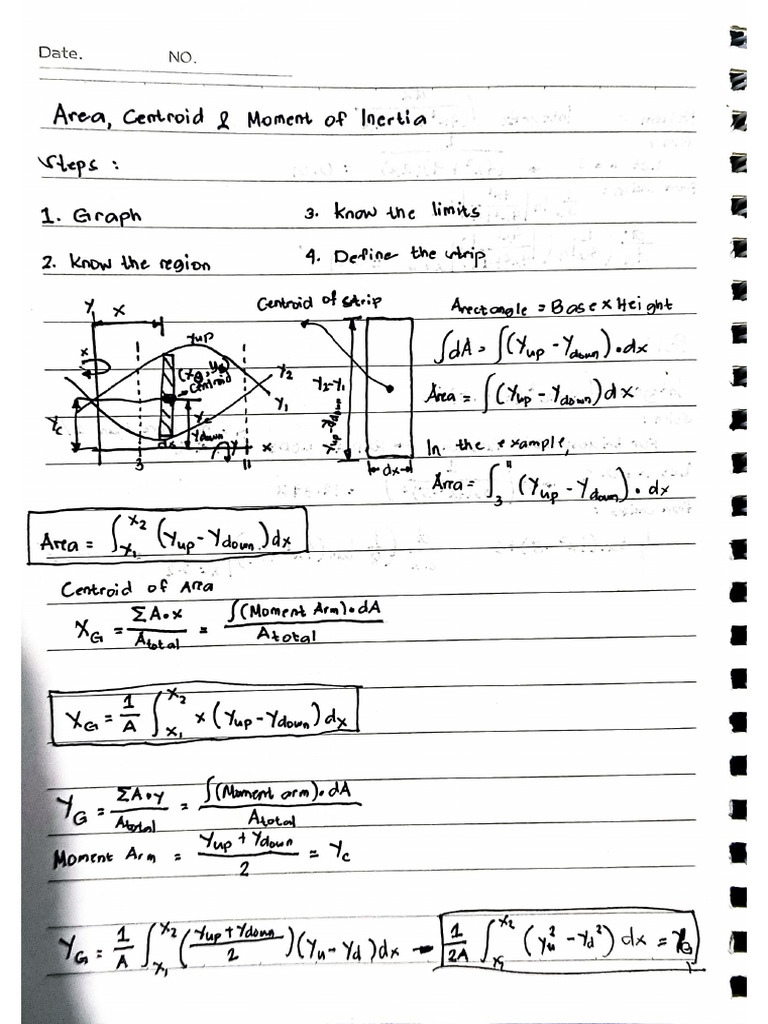 Date. NO.
Area, Centroid & Moment of Inertia
Steps :
1. Graph
3. Know the limits
2. Know the region
4. Define the strip
Y
x
Yup
(xG, yG)
centroid
Y2
Y1
Yc
Yc
Ydown
dx
3
11
x
Centroid of strip
Y2-Y1
Yup-Ydown
dx
Arectangle = Base x Height
∫dA = ∫(Yup - Ydown)•dx
Area = ∫(Yup - Ydown)dx
In the example,
Area = ∫₃¹¹ (Yup - Ydown)•dx
Area = ∫x₁^x₂ (Yup - Ydown)dx
Centroid of Area
XG = ΣA•x/Atotal = ∫(Moment Arm)•dA/Atotal
XG = 1/A ∫x₁^x₂ x(Yup - Ydown)dx
YG = ΣA•y/Atotal = ∫(Moment arm)•dA/Atotal
Moment Arm = Yup + Ydown/2 = Yc
YG = 1/A ∫x₁^x₂ (Yup + Ydown/2)(Yu - Yd)dx → 1/2A ∫x₁^x₂ (Yu² - Yd²) dx = YG